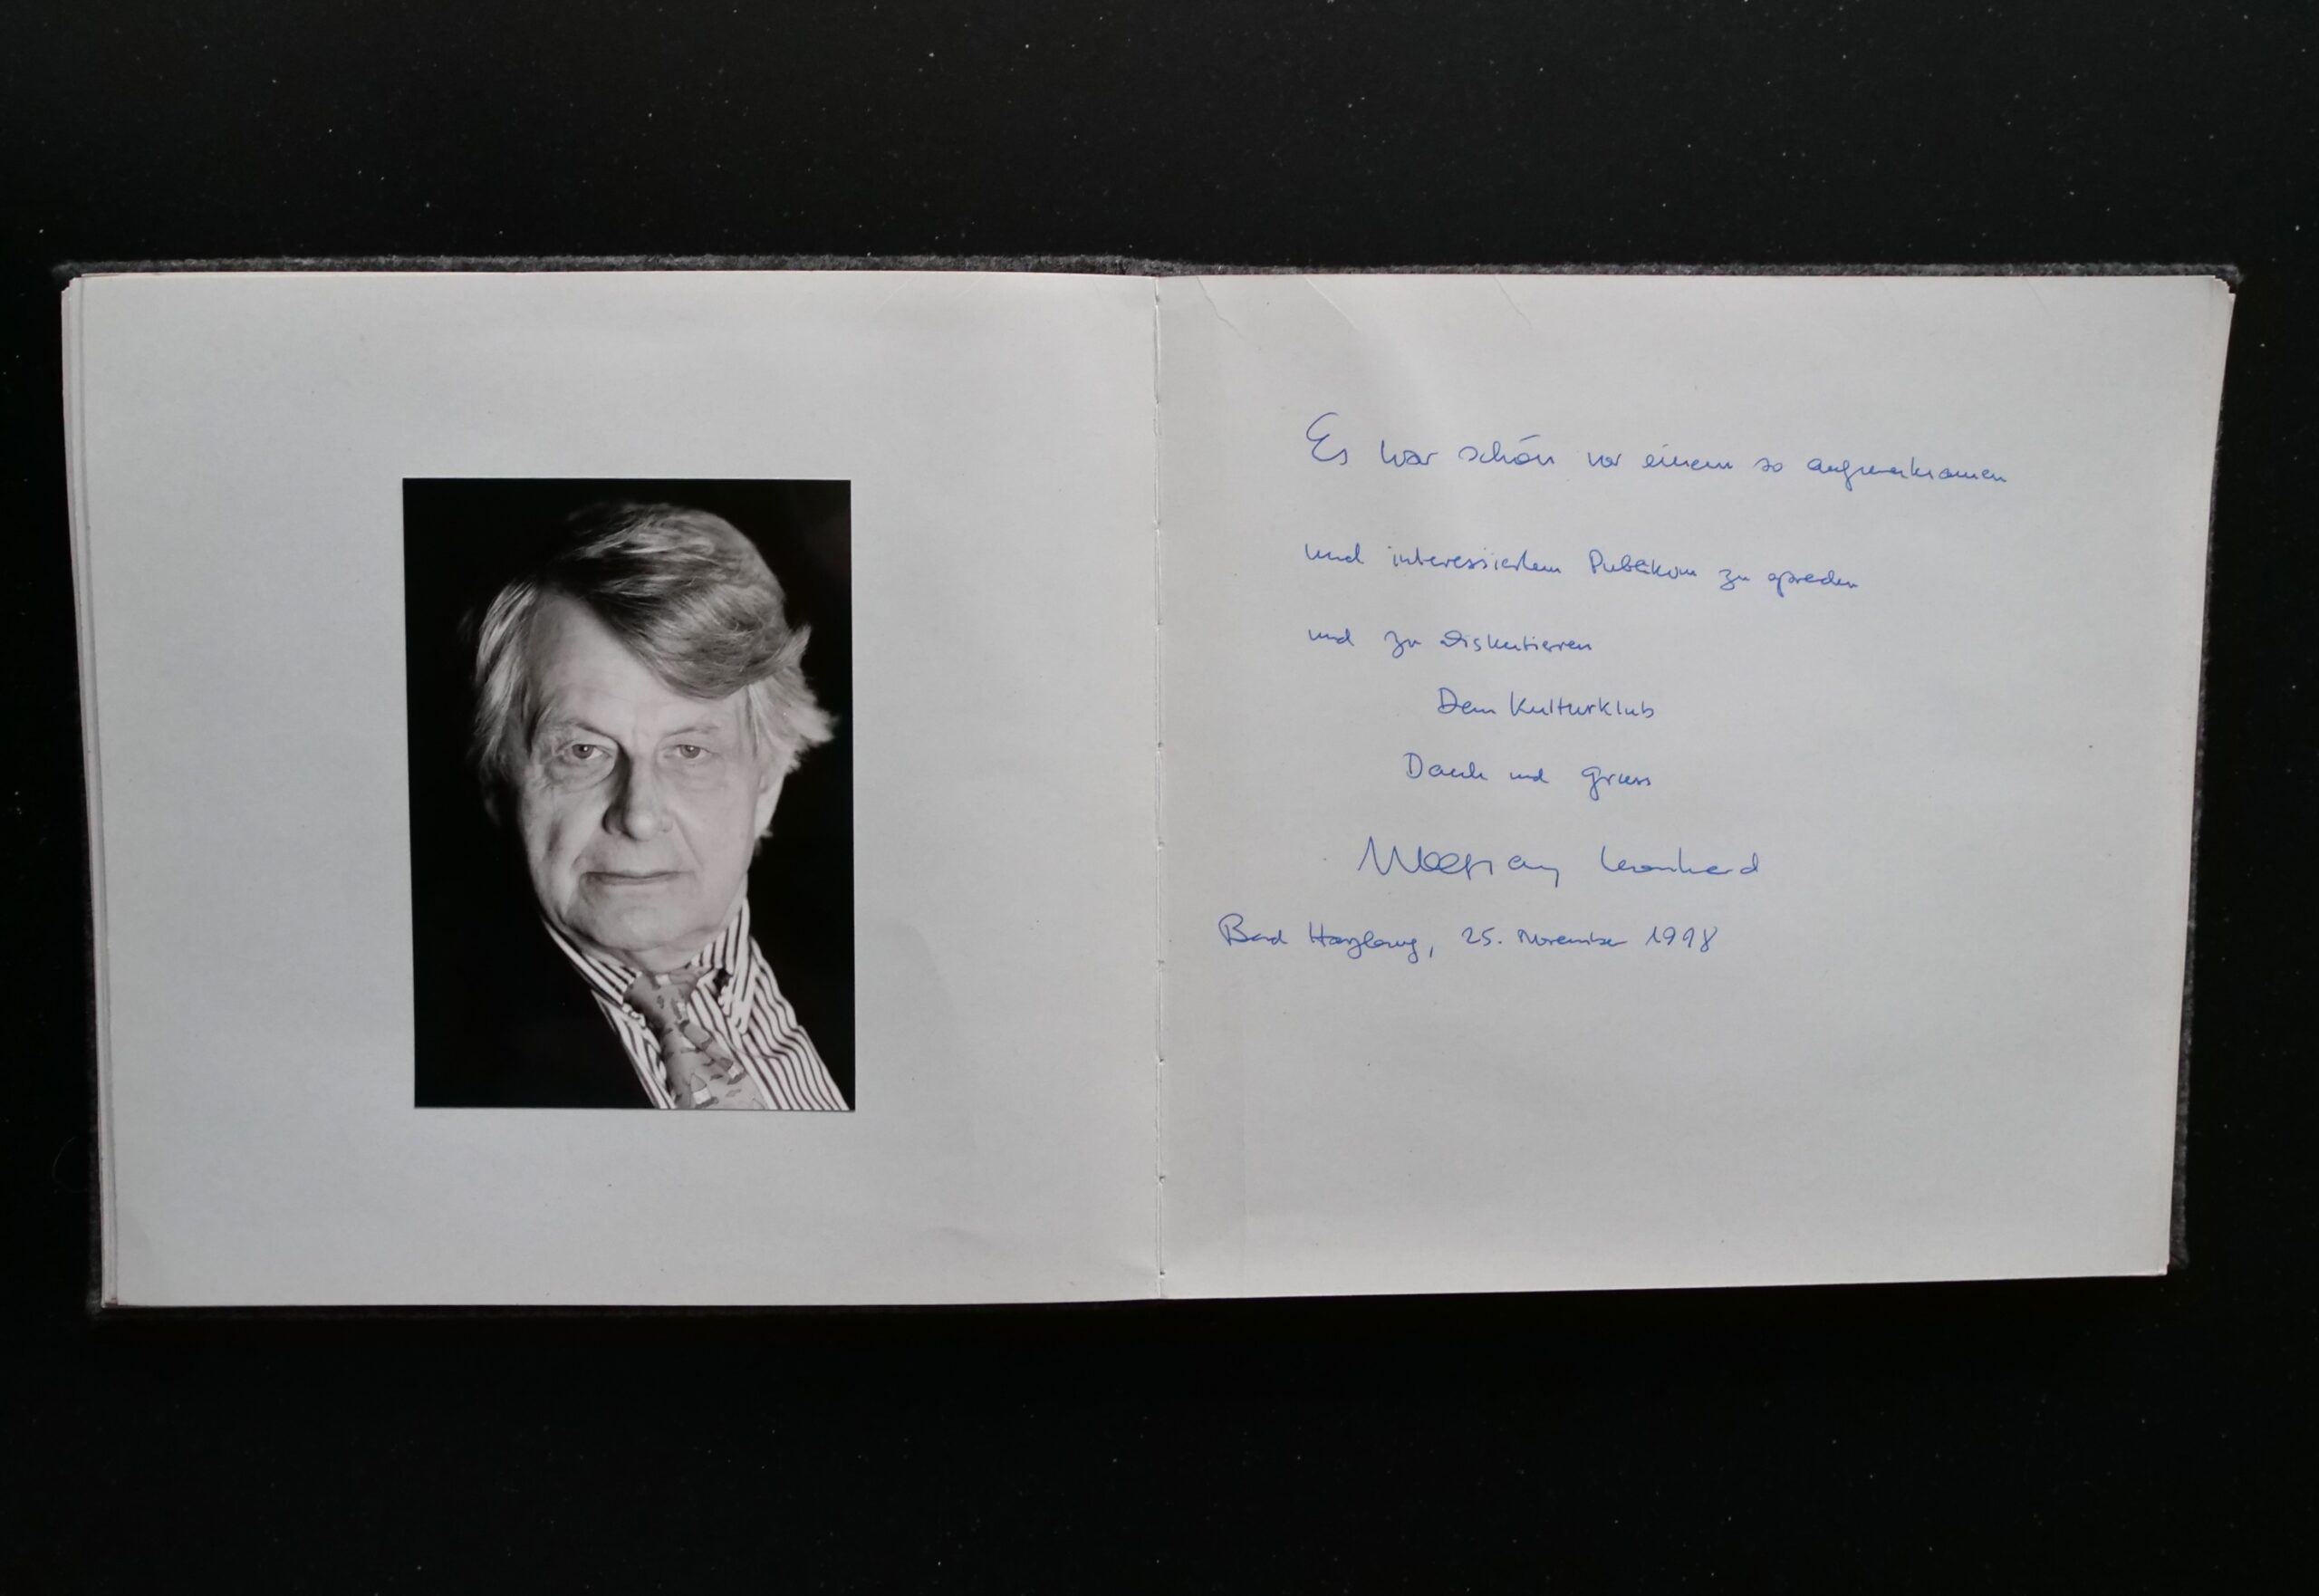 Es war schön vor einem so aufmerksamen
und interessiertem Publikum zu sprechen
und zu diskutieren
Dem Kulturklub
Dank und Gruss
Wolfgang Leonhard
Bad Harzburg, 25. November 1998